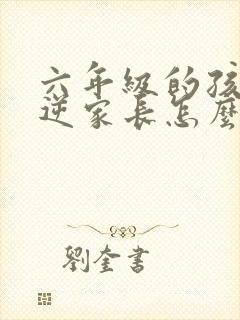 六年级的孩
逆家长怎麼
劉奎書